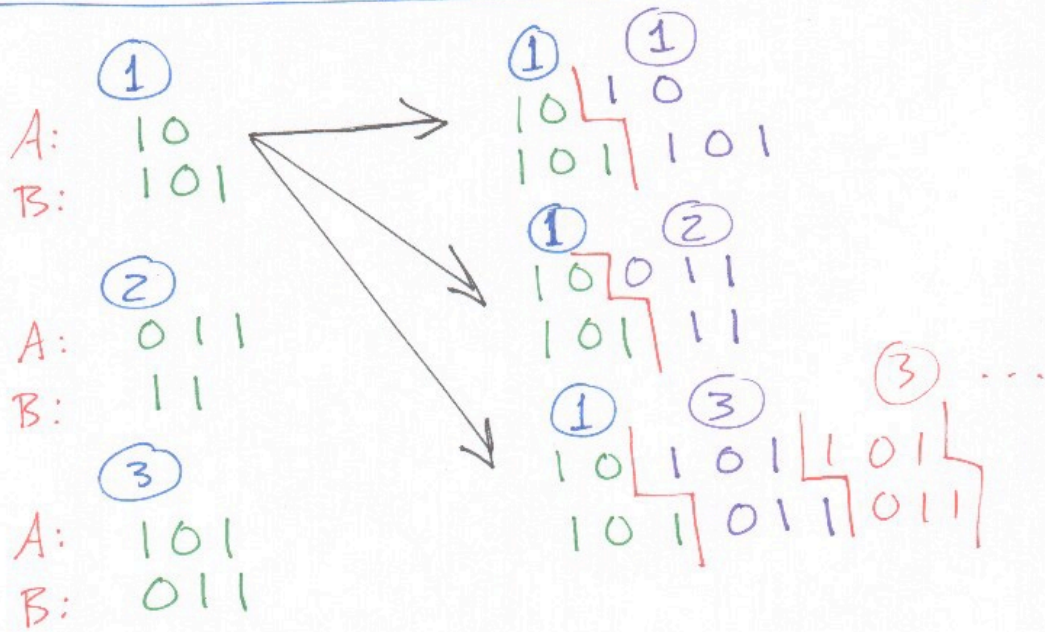 1
A: 10
B: 101
2
A: 011
B: 11
3
A: 101
B: 011
1 1
10 10
101 101
1 2
10 011
101 11
1 3 3 ...
10 101 101
101 011 011